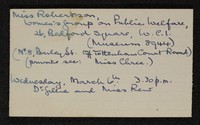 Miss Robertson,
Women's Group on Public Welfare,
26, Bedford Square, W.C.1.
(Museum
(No 8, Bayley St. off Tottenham Court Road)
(private sec. Miss Chree.)
Wednesday, March 6th 3.30 p.m.
Dr Gillie and Miss Rew